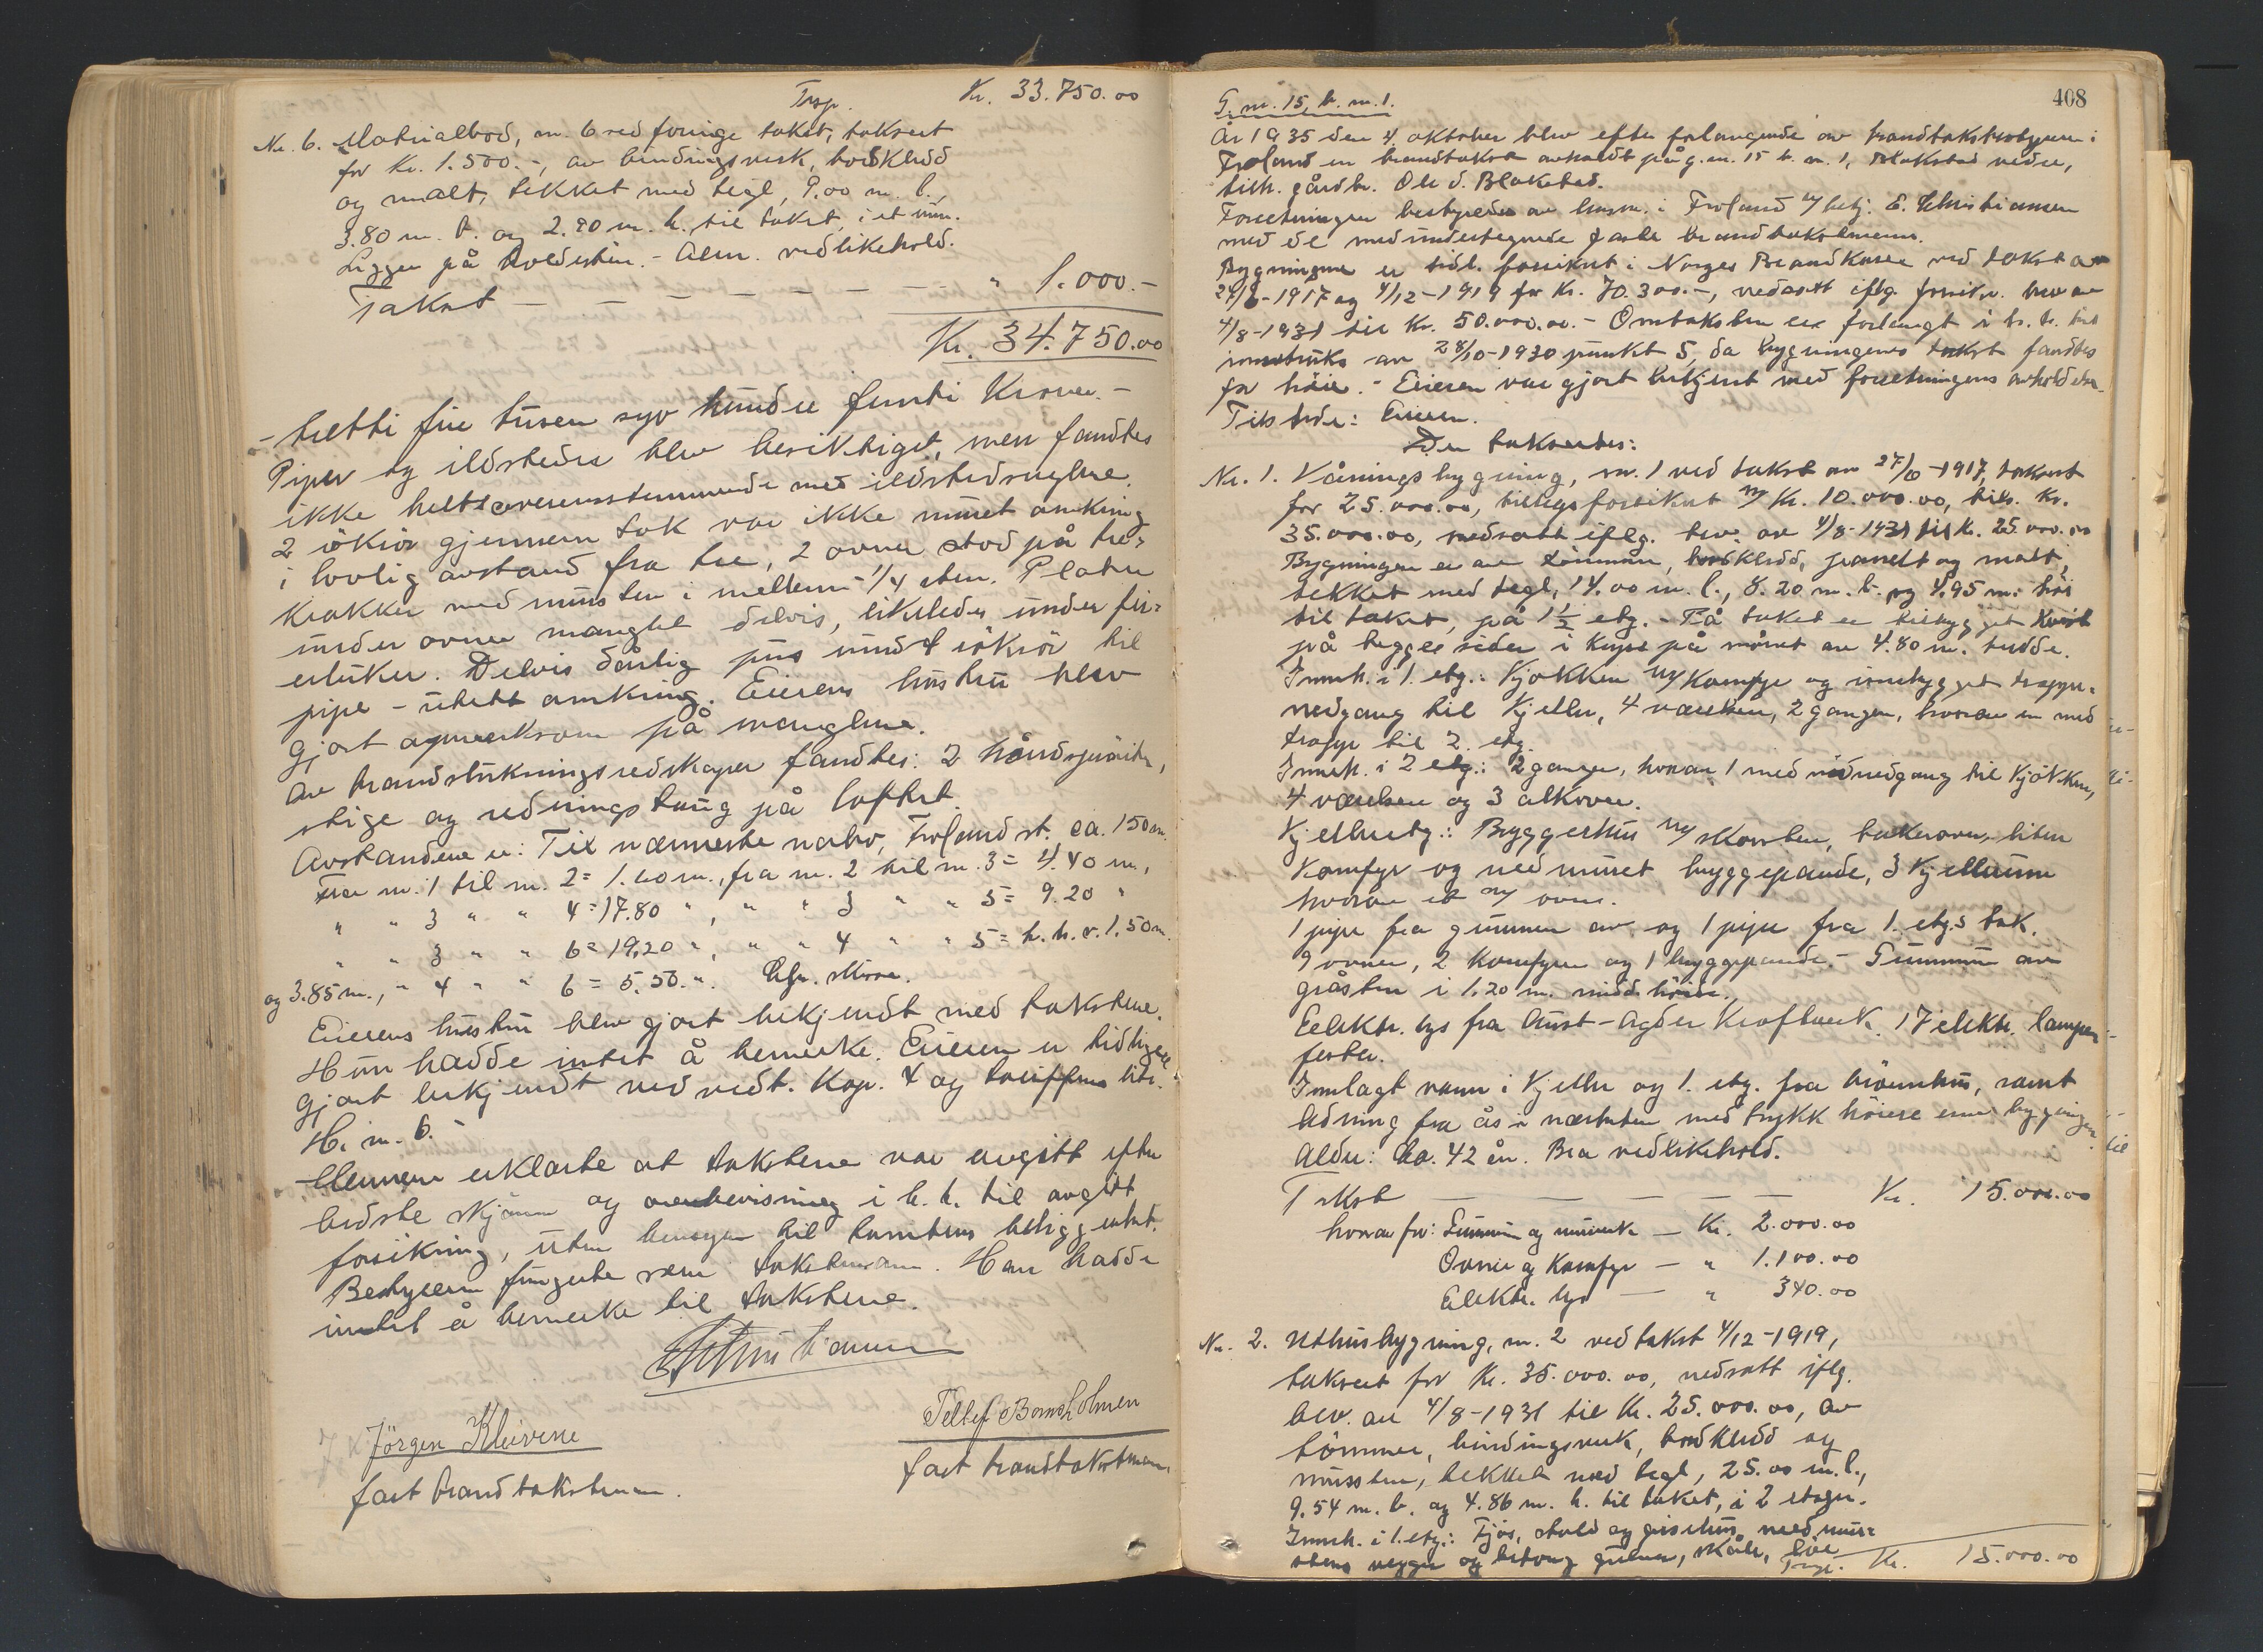 Trsp. Kr. 33.750.00
Nr. 6. Materialbod, nr. 6 ved forrige takst, taksert
for Kr. 1.500.-, av bindingsverk, bordkledd
og malt, tekket med tegl, 9.00 m. l.,
3.80 m. b. og 2.90 m. h. til taket, i et rum.
Ligger på hvelvesten. - Alm. vedlikehold.
Takst — — — — — — " 1.000.-
Kr. 34.750.00
- tretti fire tusen syv hundre femti Kroner. -
Piper og ildsteder blev besiktiget, men fandtes
ikke helt overensstemmende med ildstedsreglene.
2 rökrör gjennem tak var ikke muret omkring
i lovlig avstand fra tre, 2 ovner stod på tre-
krakker med mursten i mellem - 1/4 sten. Platen
under ovner manglet delvis, likeledes under fei-
erluker. Delvis dårlig puss rundt rökrör til
pipe - utett omkring. Eierens hustru blev
gjort opmerksom på manglene.
Av brandslukningsredskaper fandtes: 2 håndspröiter,
stige og redningstaug på loftet.
Avstandene er: Til nærmeste nabo, Froland st. ca. 150 m.
Fra nr. 1 til nr. 2 = 1.60 m., fra nr. 2 til nr. 3 = 4.40 m.,
" " 3 " " 4 = 17.80 ", " " 3 " " 5 = 9.20 "
" " 3 " " 6 = 19.20 ", " " 4 " " 5 = h. h. v. 1.50 m.
og 3.85 m., " 4 " " 6 = 5.50 ". Cfr. skisse.
Eierens hustru blev gjort bekjendt med takstene.
Hun hadde intet å bemerke. Eieren er tidligere
gjort bekjendt med vedt. Kap. 4 og tariffens litr.
H. nr. 6. -
Mennene erklærte at takstene var avgitt efter
bedste skjönn og overbevisning i h. t. til avgitt
forsikring, uten hensyn til tomtens beliggenhet.
Bestyreren fungerte som takstmann. Han hadde
intet å bemerke til takstene.
E. Christiansen
Jörgen Kleivene
fast brandtakstmann.
Tellef Bornsholmen
fast brandtakstmann.
408
G. nr. 15, b. nr. 1.
År 1935 den 4. oktober blev efter forlangende av brandtakstbestyreren i
Froland en brandtakst avholdt på g. nr. 15 b. nr. 1, Blakstad nedre,
tilh. gårdbr. Ole d. Blakstad.
Forretningen bestyredes av lensm. i Froland v/ betj. E. Christiansen
med de medundertegnede faste brandtakstmenn.
Bygningene er tidl. forsikret i Norges Brandkasse ved takst av
27/6-1917 og 4/12-1919 for Kr. 70.300.-, nedsatt iflg. forsikr. brev av
4/8-1931 til Kr. 50.000.00. - Omtaksten er forlangt i h. t. til
instruks av 28/10-1930 punkt 5, da bygningenes takst fandtes
for höie. - Eieren var gjort bekjent med forretningens avholdelse.
Tilstede: Eieren.
Der takseredes:
Nr. 1. Våningsbygning, nr. 1 ved takst av 27/6-1917, taksert
for 25.000.00, tilleggsforsikret m/ Kr. 10.000.00, tils. Kr.
35.000.00, nedsatt iflg. brev av 4/8-1931 til Kr. 25.000.00
Bygningen er av tömmer, bordkledd, panelt og malt,
tekket med tegl, 14.00 m. l., 8.20 m. b. og 4.95 m. höi
til taket, på 1 1/2 etg. - På taket er tilbygget kvist
på begge sider i kryss på mönet av 4.80 m. bredde.
Innh. i 1. etg.: Kjökken m/ Komfyr og innebygget trappe-
nedgang til Kjeller, 4 værelser, 2 ganger, hvorav en med
trapp til 2. etg.
Innh. i 2 etg.: 2 ganger, hvorav 1 med nedgang til Kjökken,
4 værelser og 3 alkover.
Kjelleretg.: Bryggerhus m/ skorsten, bakerovn, liten
Komfyr og nedmuret bryggepande, 3 Kjellerrum
hvorav et m/ ovn.
1 pipe fra grunnen av og 1 pipe fra 1. etg.s tak.
9 ovner, 2 Komfyrer og 1 bryggepande. - Grunnmur av
gråsten i 1.20 m. midd. höide.
Elektr. lys fra Aust-Agder Kraftverk. 17 elektr. lampe-
fester.
Innlagt vann i Kjeller og 1. etg. fra brönnhus, samt
ledning fra ås i nærheten med trykk höiere enn bygningen.
Alder: Ca. 42 år. Bra vedlikehold.
Takst — — — — — Kr. 15.000.00
hvorav for: Grunnmur og murverk — Kr. 2.000.00
Ovner og Komfyr — " 1.100.00
Elektr. lys — " 340.00
Nr. 2. Uthusbygning, nr. 2 ved takst 4/12-1919,
taksert for Kr. 35.000.00, nedsatt iflg.
brev. av 4/8-1931 til Kr. 25.000.00, av
tömmer, bindingsverk, bordkledd og
mursten, tekket med tegl, 25.00 m. l.,
9.54 m. b. og 4.86 m. h. til taket, i 2 etager.
Innh. i 1. etg.: Fjös, stald og grisehus, med mur-
stens vegger og betong gulver, skåle, löe
Trsp. Kr. 15.000.00